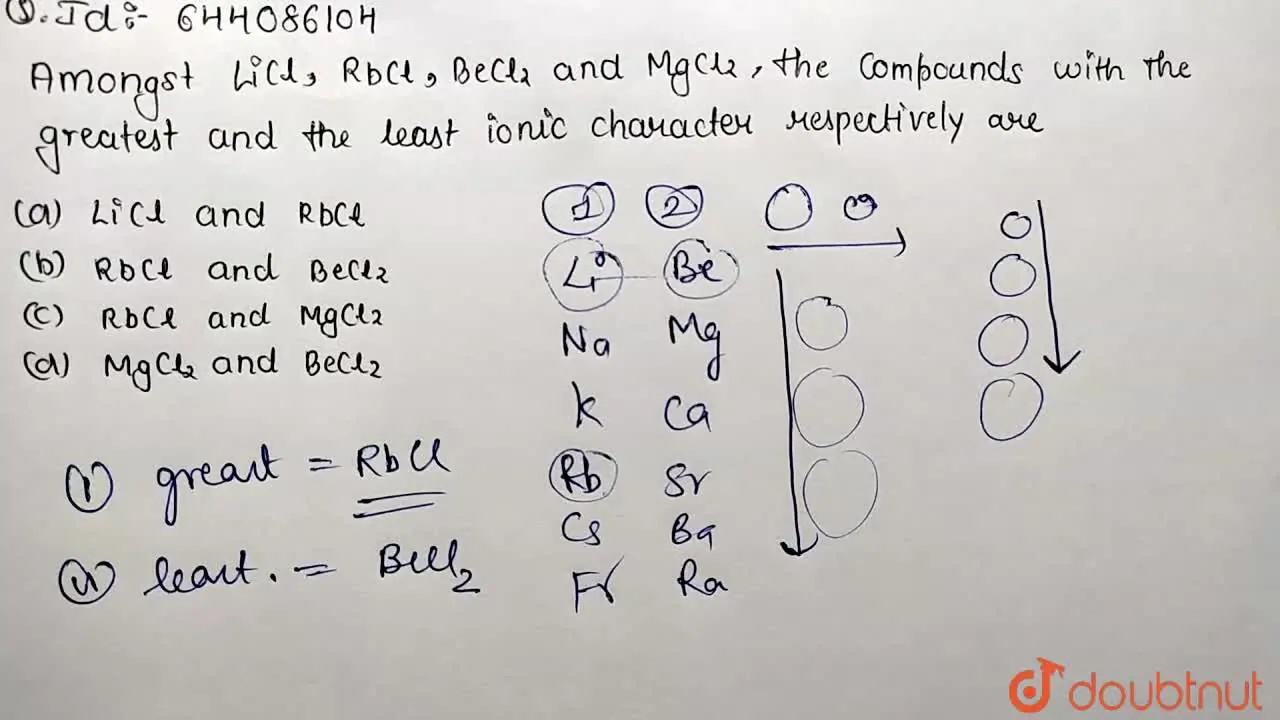 Q. Id:- 644086104
Amongst LiCl, RbCl, BeCl2 and MgCl2, the compounds with the
greatest and the least ionic character respectively are
(a) LiCl and RbCl
(b) RbCl and BeCl2
(c) RbCl and MgCl2
(d) MgCl2 and BeCl2
1 2
Li Be
Na Mg
K Ca
Rb Sr
Cs Ba
Fr Ra
(1) greast = RbCl
least. = BeCl2
doubtnut